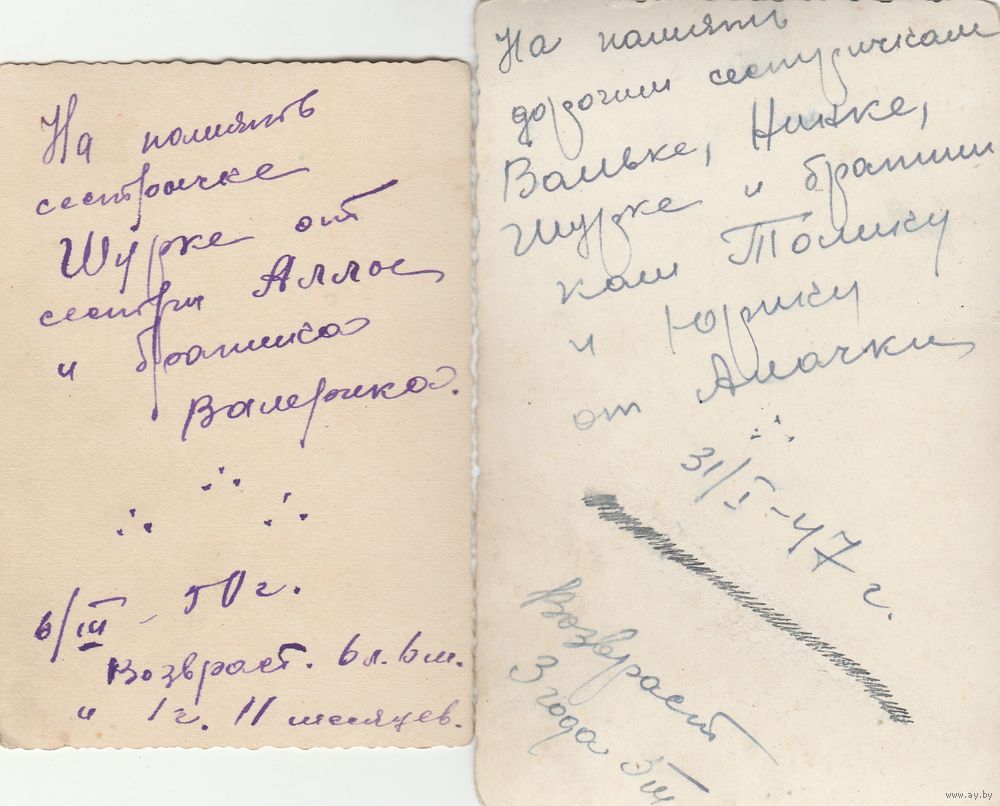 На память
сестрочке
Шурке от
сестры Аллое
и братика
Валерика.
6/III - 50 г.
Возвраст. 6 л. 6 м.
и 1 г. 11 месяцев.
На память
дорогим сестричкам
Вальке, Нинке,
Шурке и братиш
кам Толику
и Юрику
от Алочки
31/I - 47 г.
Возвраст
3 года 3 м
www.ay.by